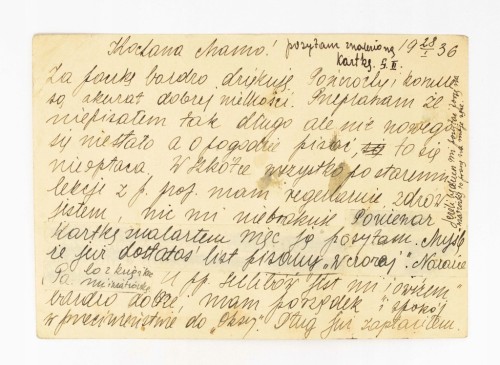 Kochana Mamo! posyłam znalezioną 19 28/I 36
kartkę 5.II.
Za paczkę bardzo dziękuję. Pończochy i koszule
są akurat dobrej wielkości. Przepraszam że
niepisałem tak długo ale nic nowego
się niestało a o pogodzie pisać, to się
nieopłaca. W szkole wszystko po staremu
lekcji z p. prof. mam regularnie, zdrów
jestem, nic mi niebrakuje. Ponieważ
kartkę znalazłem więc ją posyłam. Myślę
że już dostałaś list pisany "wczoraj". Narazie
U pp. jest mi
bardzo dobrze, mam porządek i spokój
w przeciwieństwie do już zapłaciłem.